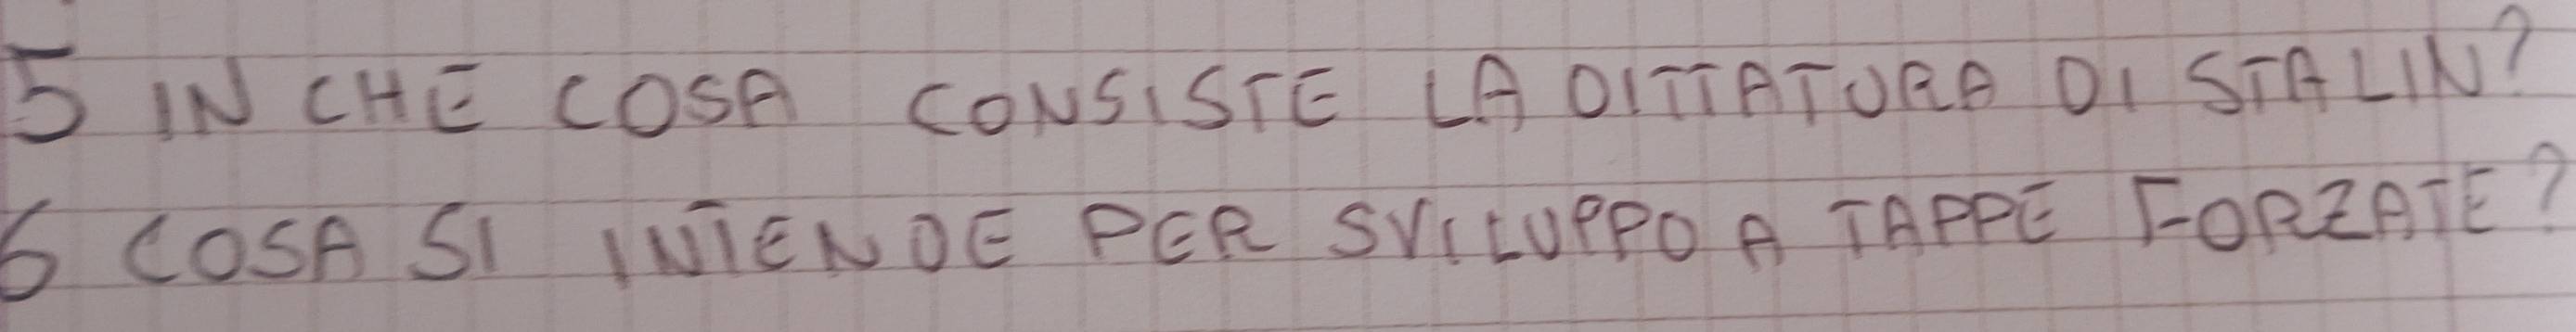 5 IN CHE COSA CONSISTE LA DITTATURA DI STALIN?
6 COSA SI INTENDE PER SVILUPPO A TAPPE FORZATE?